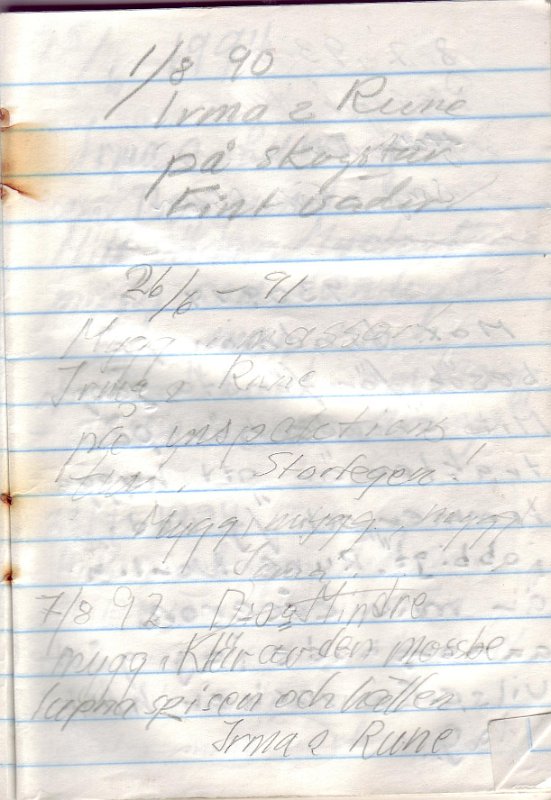 1/8 90
Irma & Rune
på skogstur
Fint väder
26/6 - 91
Mygg i massor
Irma & Rune
på inspektions
tur. Storregen!
Mygg, mygg, mygg
Irma
7/8 92 Mindre
mygg. Klar av den mossbe
lupna spisen och hällen.
Irma & Rune